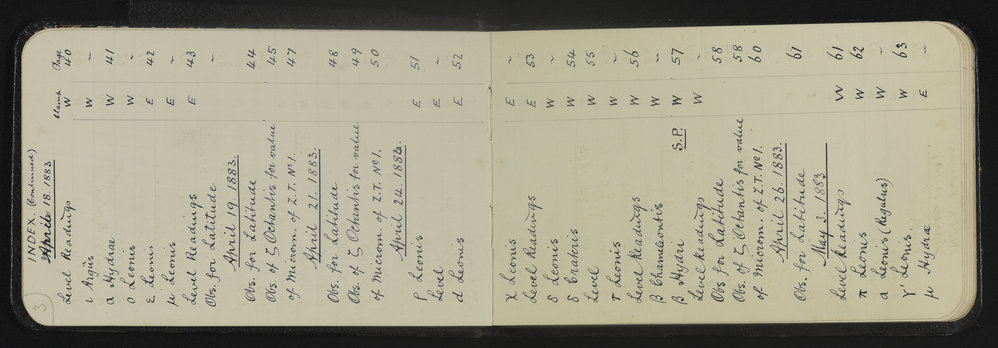 3
INDEX. (Continued)
April 18 1883 Clamp Page
Level Readings W 40
ι Argus W ~
α Hydrae W 41
ο Leonis W ~
ε Leonis E 42
μ Leonis E ~
Level Readings E 43
Obs. for Latitude ~
April 19 1883.
Obs. for Latitude 44
Obs. of ζ Octantis for value 45
of Microm. of Z.T. No 1. 47
April 21. 1883.
Obs. for Latitude 48
Obs. of ζ Octantis for value 49
of Microm. of Z.T. No 1. 50
April 24. 1883.
ρ Leonis E 51
Level E ~
d Leonis E 52
χ Leonis E ~
Level Readings E 53
δ Leonis W ~
δ Crateris W 54
Level W 55
τ Leonis W ~
Level Readings W 56
β Chamleontis W ~
β Hydri S.P. W 57
Level Readings W ~
Obs for Latitude 58
Obs. of ζ Octantis for value 58
of Microm. of Z.T. No 1. 60
April 26. 1883.
Obs. for Latitude 61
May 3. 1883
Level Readings W 61
π Leonis W 62
α Leonis (Regulus) W ~
γ' Leonis. W 63
μ Hydræ E ~